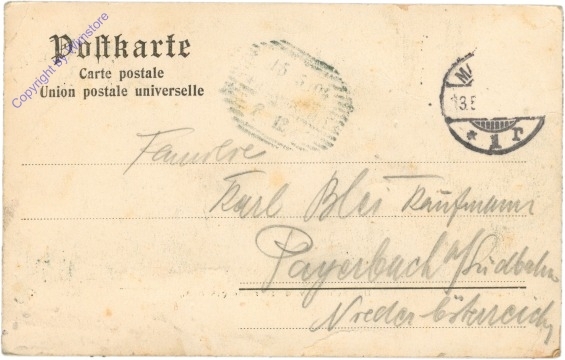 Postkarte
Carte postale
Union postale universelle
Copyright by Wimstore
15
MA
13.
* 1 r
Familie
Karl Blei Kaufmann
Payerbach a/Südbahn
Niederösterreich